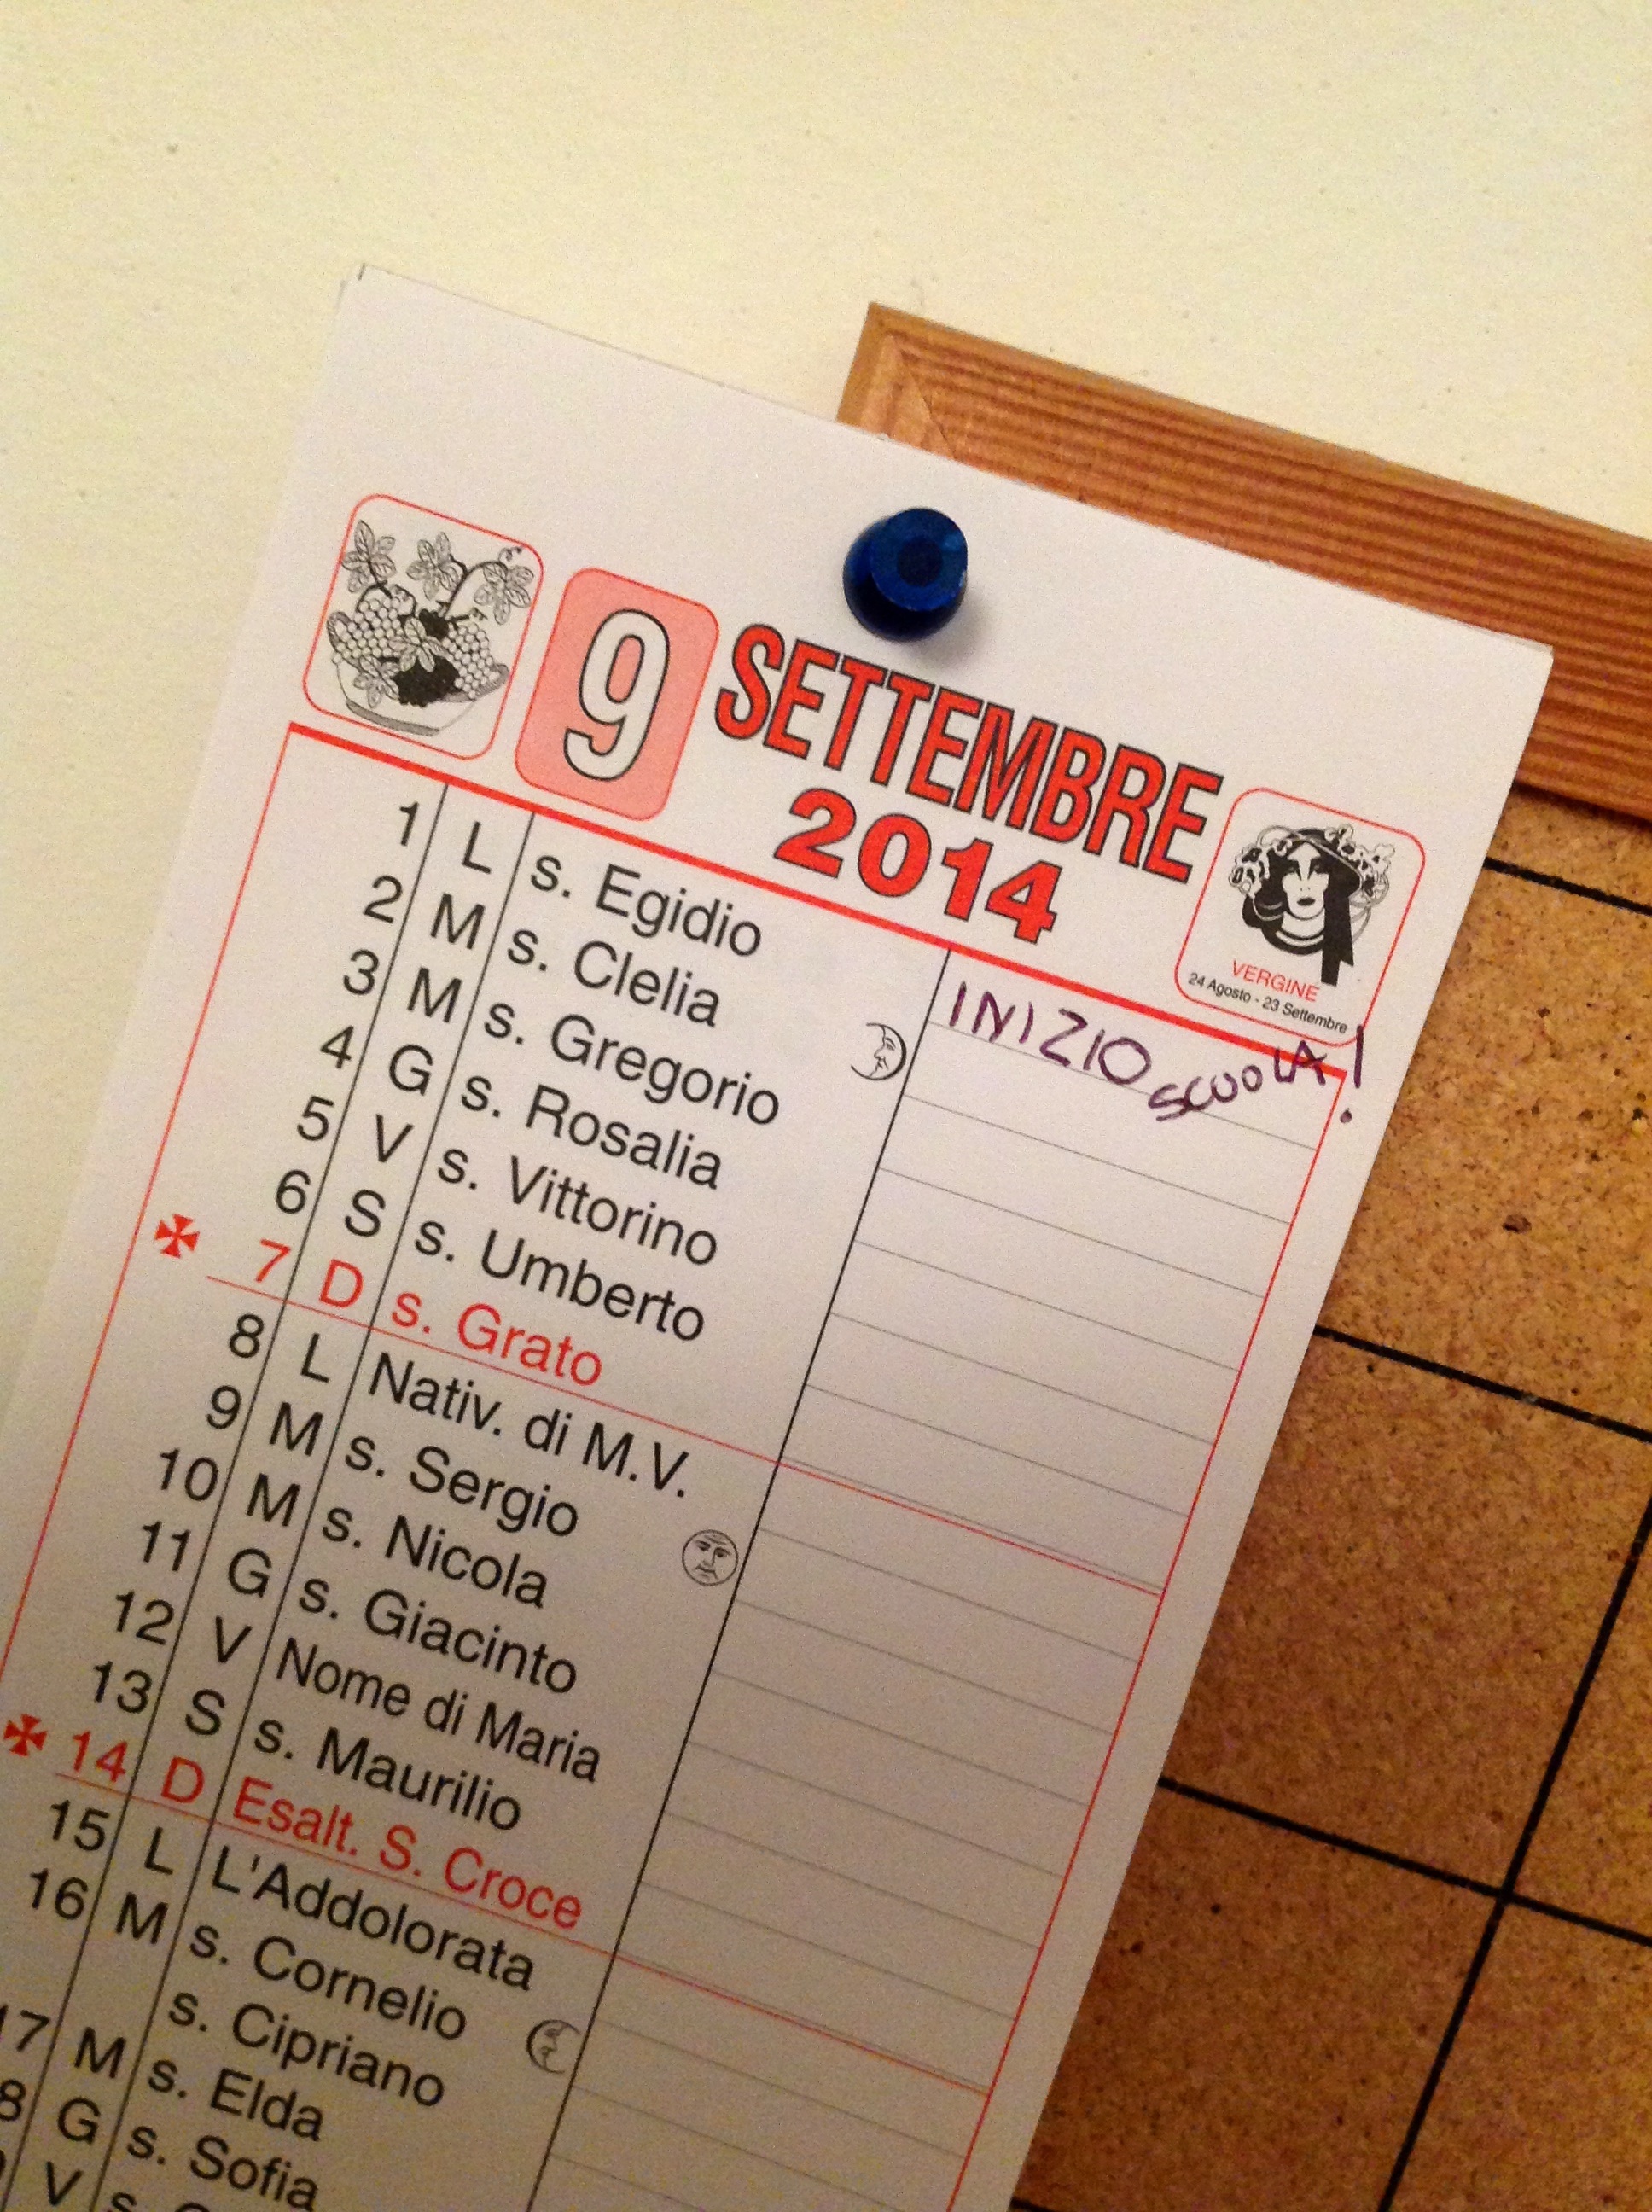 9 SETTEMBRE
2014
VERGINE
24 Agosto - 23 Settembre
1 L s. Egidio INIZIO SCUOLA!
2 M s. Clelia
3 M s. Gregorio
4 G s. Rosalia
5 V s. Vittorino
6 S s. Umberto
7 D s. Grato
8 L Nativ. di M.V.
9 M s. Sergio
10 M s. Nicola
11 G s. Giacinto
12 V Nome di Maria
13 S s. Maurilio
14 D Esalt. S. Croce
15 L L'Addolorata
16 M s. Cornelio
s. Cipriano
17 M s. Elda
8 G s. Sofia
V s.